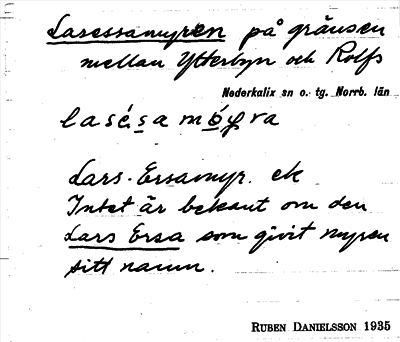 Larsessamyren på gränsen
mellan Ytterbyn och Rolfs
Nederkalix sn o. tg. Norrb. län
lasésa
Lars-Ersamyr. ek
Intet är bekant om den
Lars Ersa som givit myren
sitt namn.
RUBEN DANIELSSON 1935